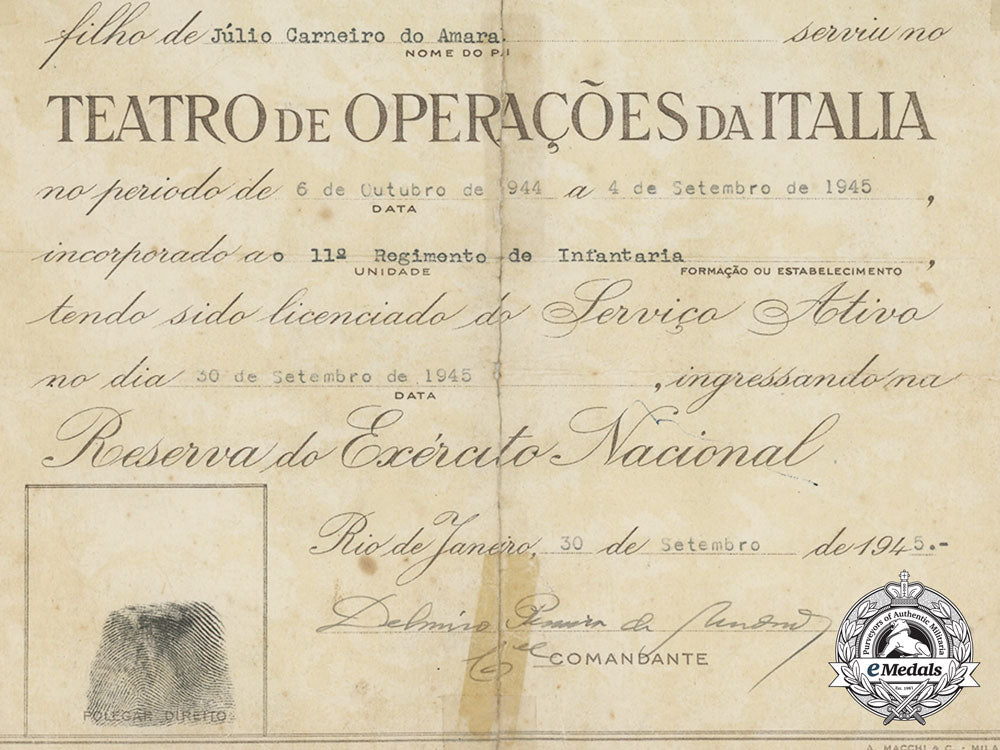 filho de Júlio Carneiro do Amara. serviu no
NOME DO P.I
TEATRO DE OPERAÇÕES DA ITALIA
no periodo de 6 de Outubro de 944 a 4 de Setembro de 1945 ,
DATA
incorporado ao o 11º Regimento de Infantaria ,
UNIDADE FORMAÇÃO OU ESTABELECIMENTO
tendo sido licenciado do Serviço Ativo
no dia 30 de Setembro de 1945 , ingressando na
DATA
Reserva do Exército Nacional
Rio de Janeiro, 30 de Setembro de 1945.-
Delmiro Pereira de
Cel COMANDANTE
POLEGAR DIREITO
Purveyors of Authentic Militaria
eMedals
Est. 1967
A. MACCHI & C. - MILA